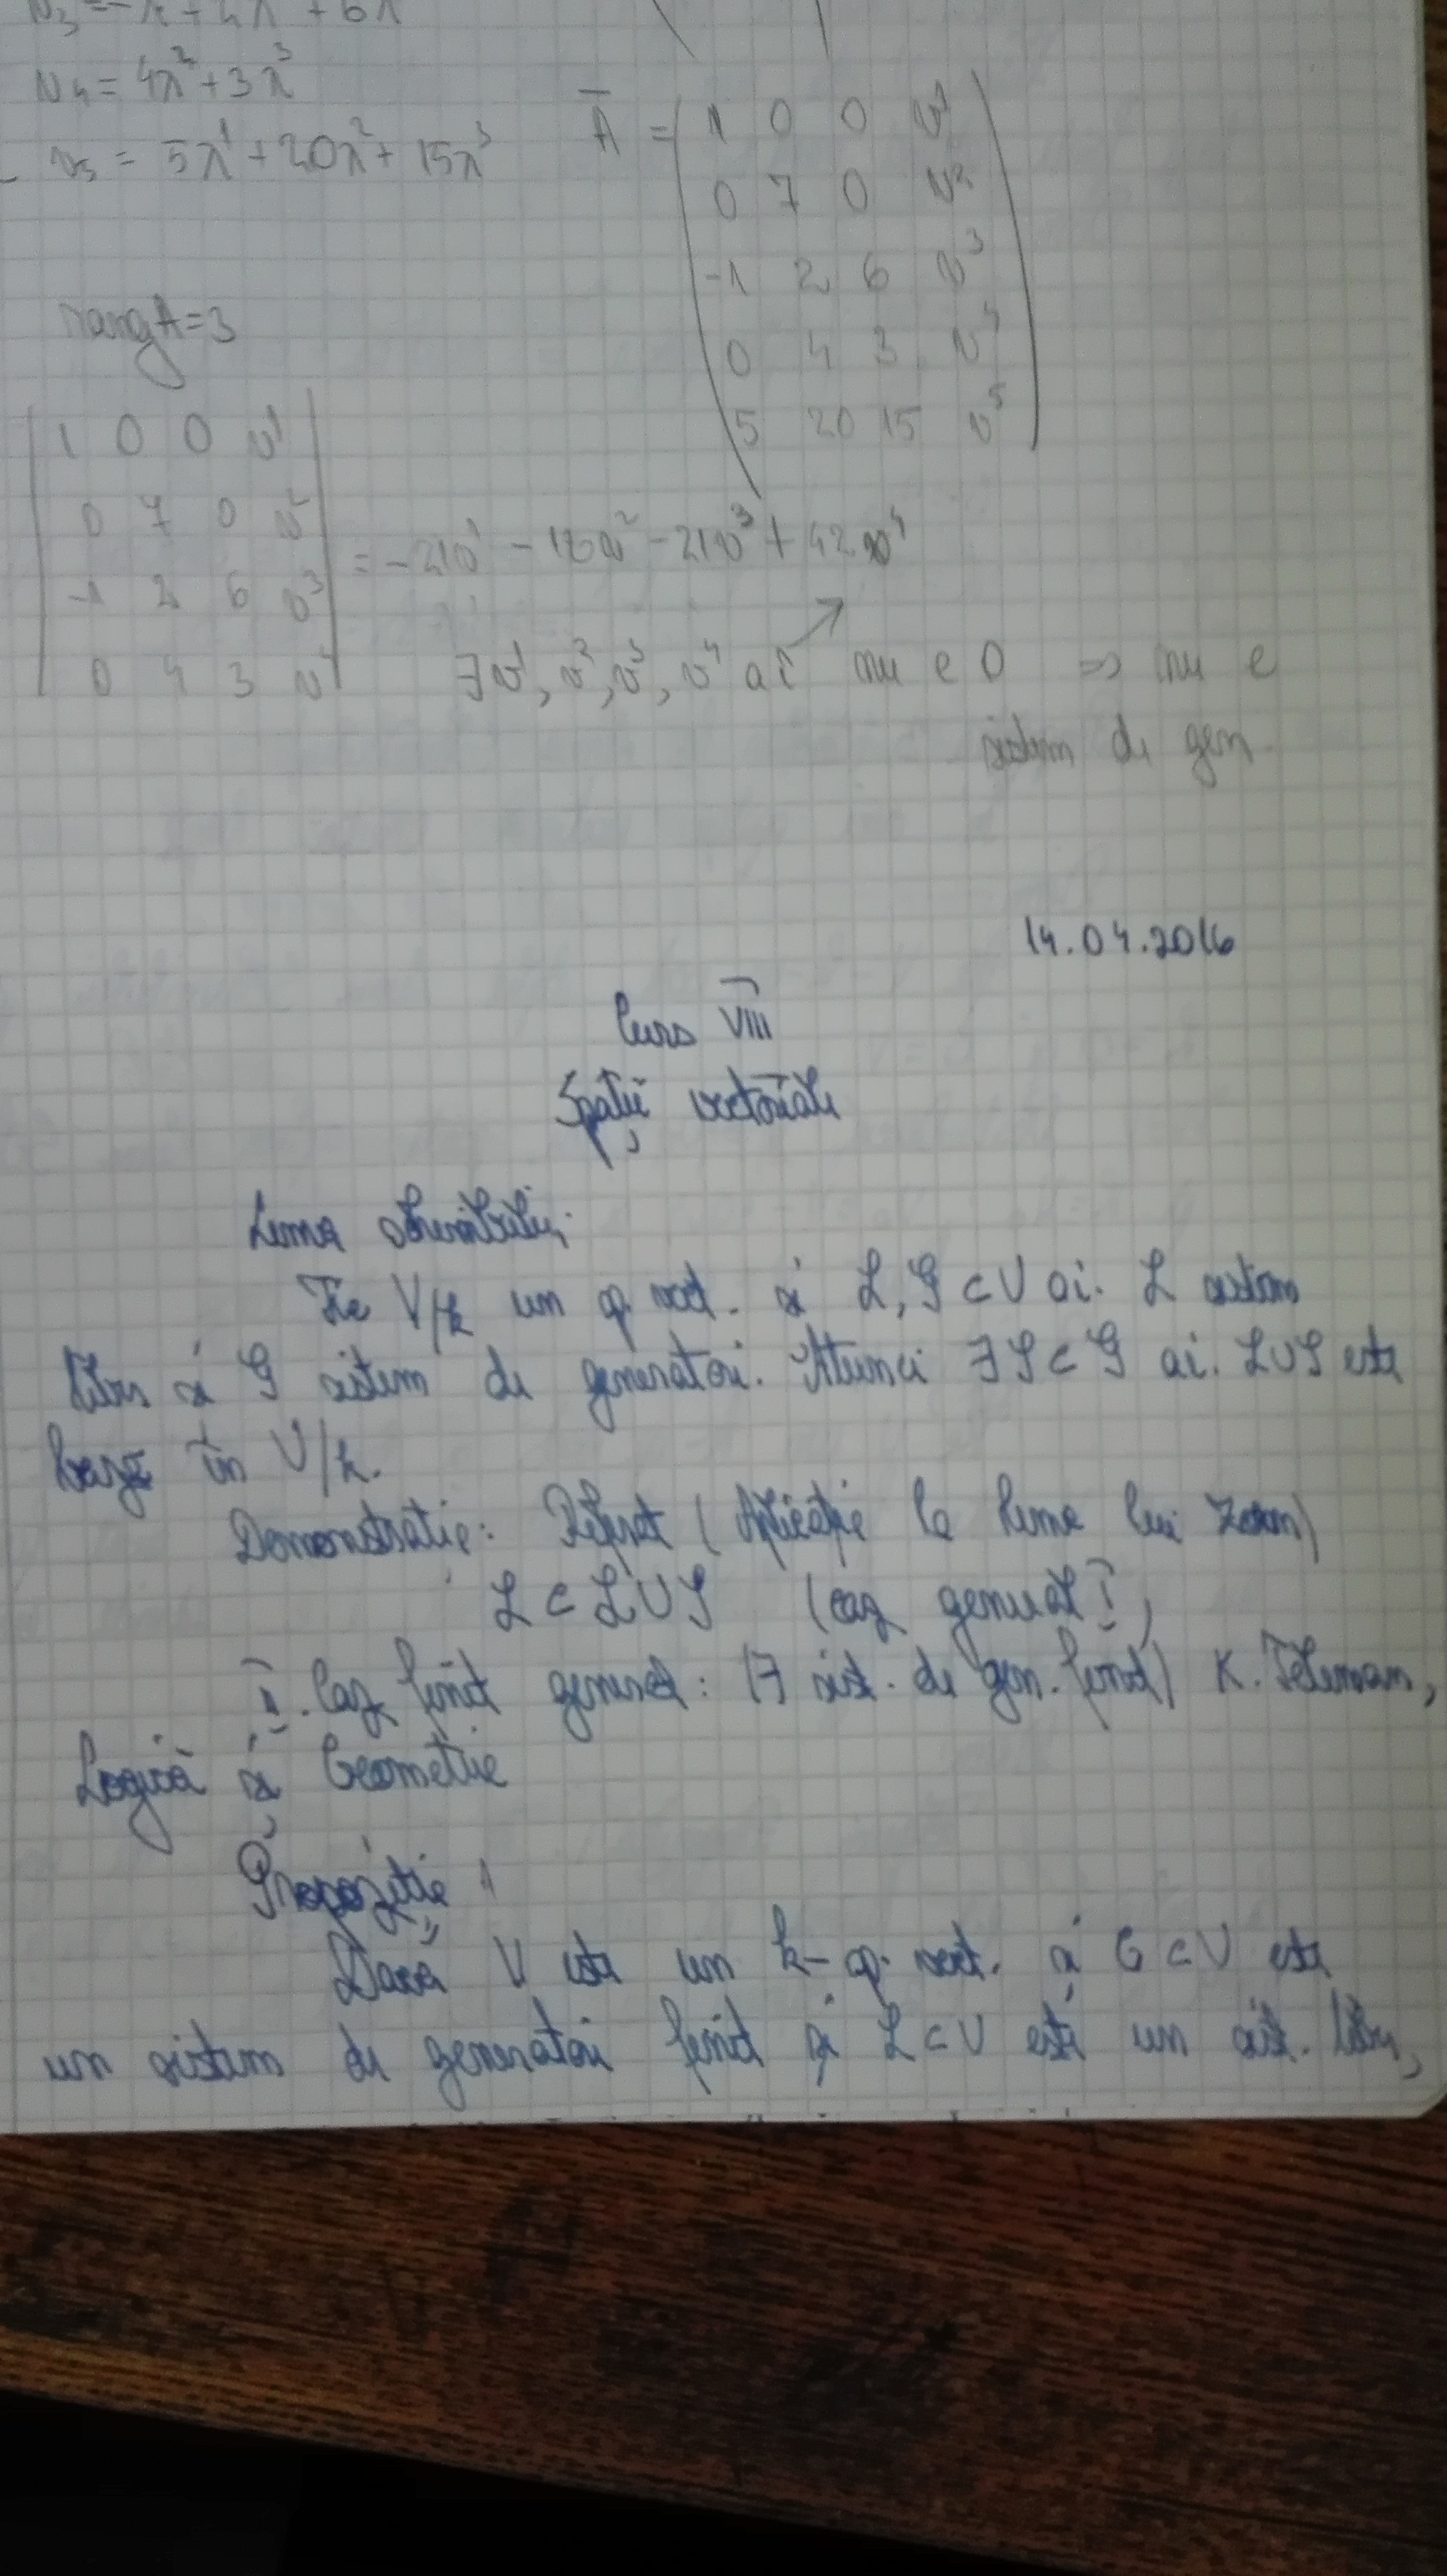 v₃ = -λ¹ + 2λ² + 6λ³
v₄ = 4λ² + 3λ³
v₅ = 5λ¹ + 20λ² + 15λ³
Ā = ( 1 0 0 v¹
0 7 0 v²
-1 2 6 v³
0 4 3 v⁴
5 20 15 v⁵ )
rang A = 3
| 1 0 0 v¹ |
| 0 7 0 v² |
| -1 2 6 v³ |
| 0 4 3 v⁴ |
= -21v¹ - 18v² - 21v³ + 42v⁴
∃ v¹, v², v³, v⁴ aî nu e 0 ⇒ nu e
sistem de gen
14.04.2016
Curs VIII
Spații vectoriale
Lema
Fie V/k un sp. vect. și L, G ⊂ V ai. L sistem
liber și G sistem de generatori. Atunci ∃ S ⊂ G ai. L∪S este
bază în V/k.
Demonstrație: Referat (Aplicație la lema lui Zorn)
L ⊂ L∪S (caz general I)
II. Caz finit generat: (∃ sist. de gen. finit) K. Teleman,
Logică și Geometrie
Propoziție 1
Dacă V este un k-sp. vect. și G ⊂ V este
un sistem de generatori finit și L ⊂ V este un sist. liber,